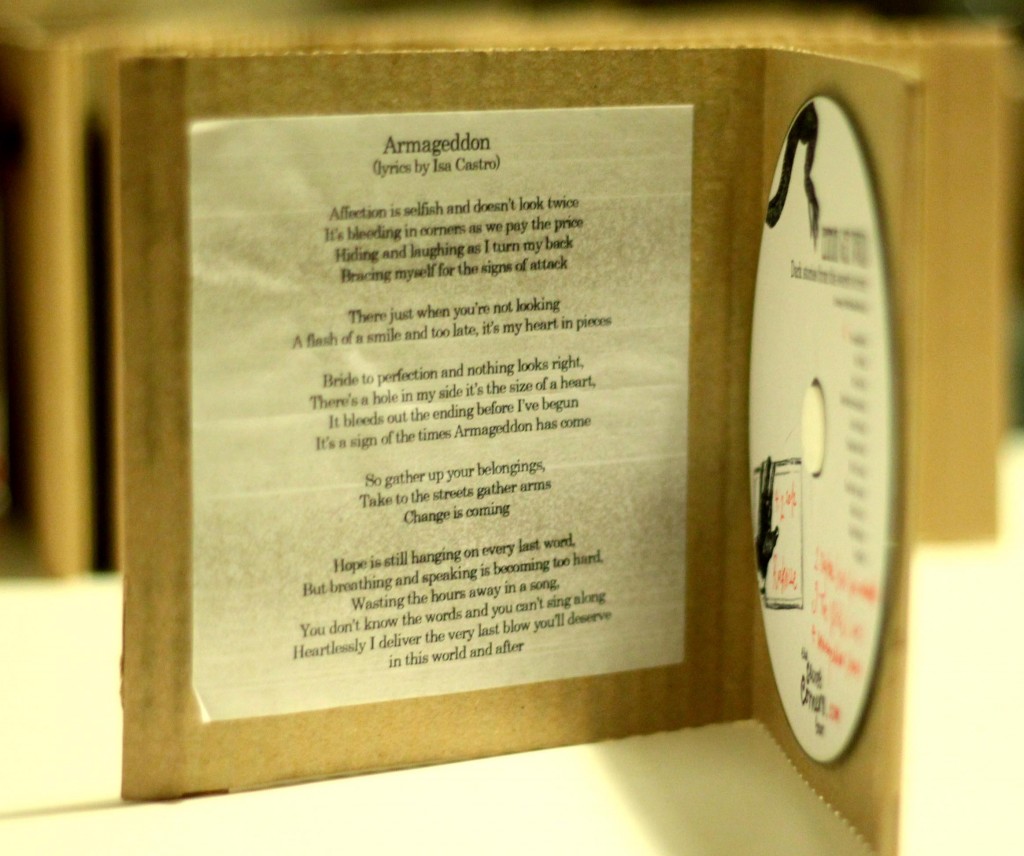 Armageddon
(lyrics by Isa Castro)
Affection is selfish and doesn't look twice
It's bleeding in corners as we pay the price
Hiding and laughing as I turn my back
Bracing myself for the signs of attack
There just when you're not looking
A flash of a smile and too late, it's my heart in pieces
Bride to perfection and nothing looks right,
There's a hole in my side it's the size of a heart,
It bleeds out the ending before I've begun
It's a sign of the times Armageddon has come
So gather up your belongings,
Take to the streets gather arms
Change is coming
Hope is still hanging on every last word,
But breathing and speaking is becoming too hard,
Wasting the hours away in a song,
You don't know the words and you can't sing along
Heartlessly I deliver the very last blow you'll deserve
in this world and after